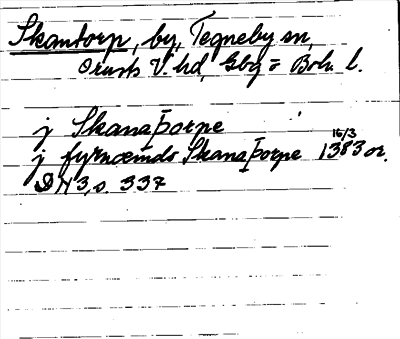 Skantorp, by, Tegneby sn,
Orusts V. hd, Gbg o Boh. l.
j Skanaþorpe
j fyrnæmdo Skanaþorpe 16/3 1383 or.
DN 3, s. 337